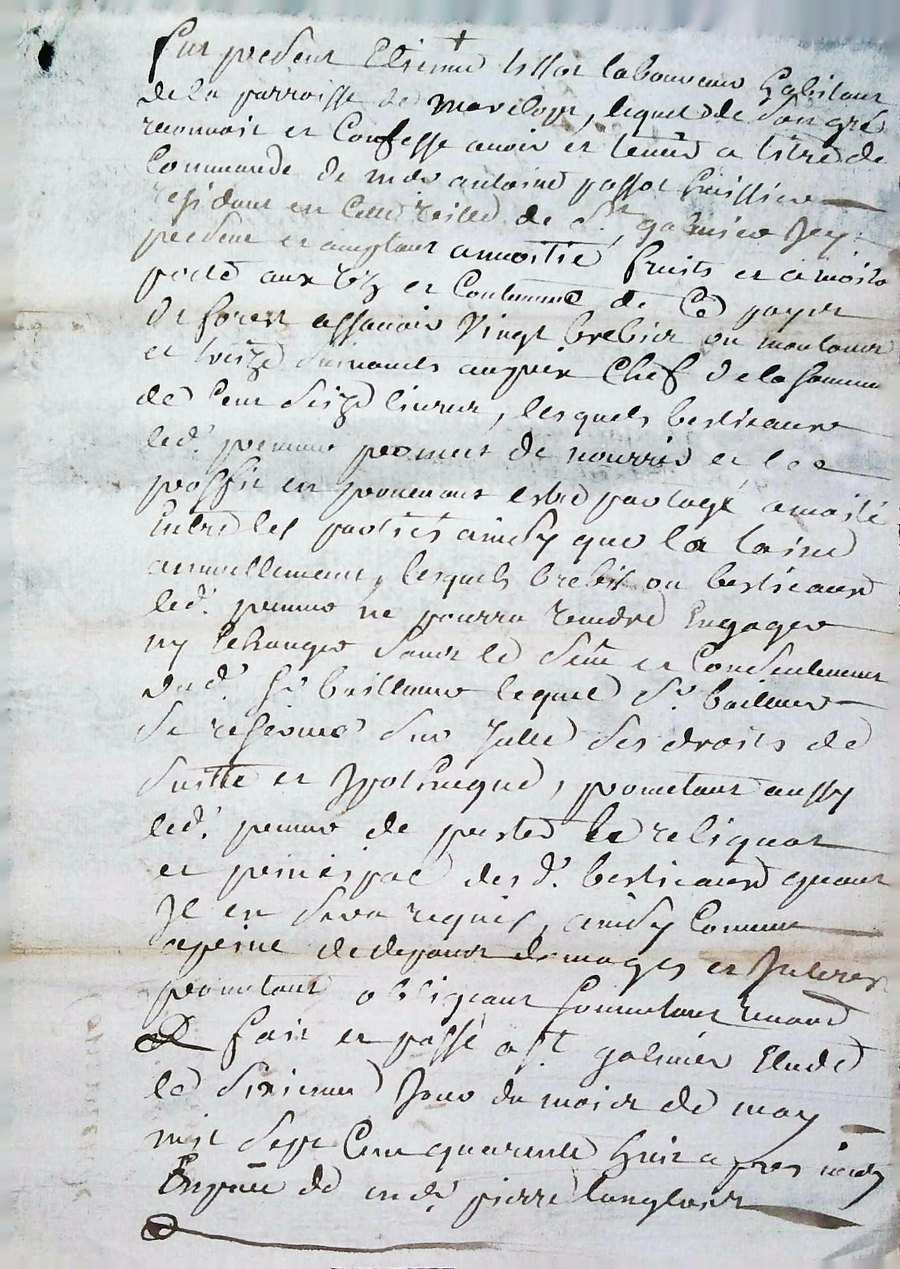 fut present Etienne tissot laboureur habitant
de la parroisse de Marclopt, lequel de son gré
reconnoit et Confesse avoir et tenir a titre de
Commande de me antoine passot huissier
residant en Cette ville de St galmier Icy
present et acceptant amoitié fruits et a moitié
perte aux et Coutumes de Ce payis
de forest assavoir Vingt brebis ou moutons
et treize suivants au prix Chef de la somme
de Cent seize livres, lesquels bestieaux
led. preneur promet de nourrir et le
proffit en provenant estre partagé amoitié
Entre les parties ainsy que la laine
annuellement, lesquels brebis ou bestieaux
led. preneur ne pourra vendre Engager
ny Echanger sans le et Consentement
dud. Sr bailleur lequel Sr bailleur
se reserve sur Icelle ses droits de
suitte et Ipothecque, prometant aussy
led. preneur de le reliquat
et principal des d. bestieaux quant
Il en sera requis, ainsy Comme
apeine de depans domages et Interest
prometant obligeant soumetant renont
fait et passé a St galmier Etude
le sixieme Jour du mois de may
mil sept Cent quarente huit apres midy
En pnce de pierre langlois